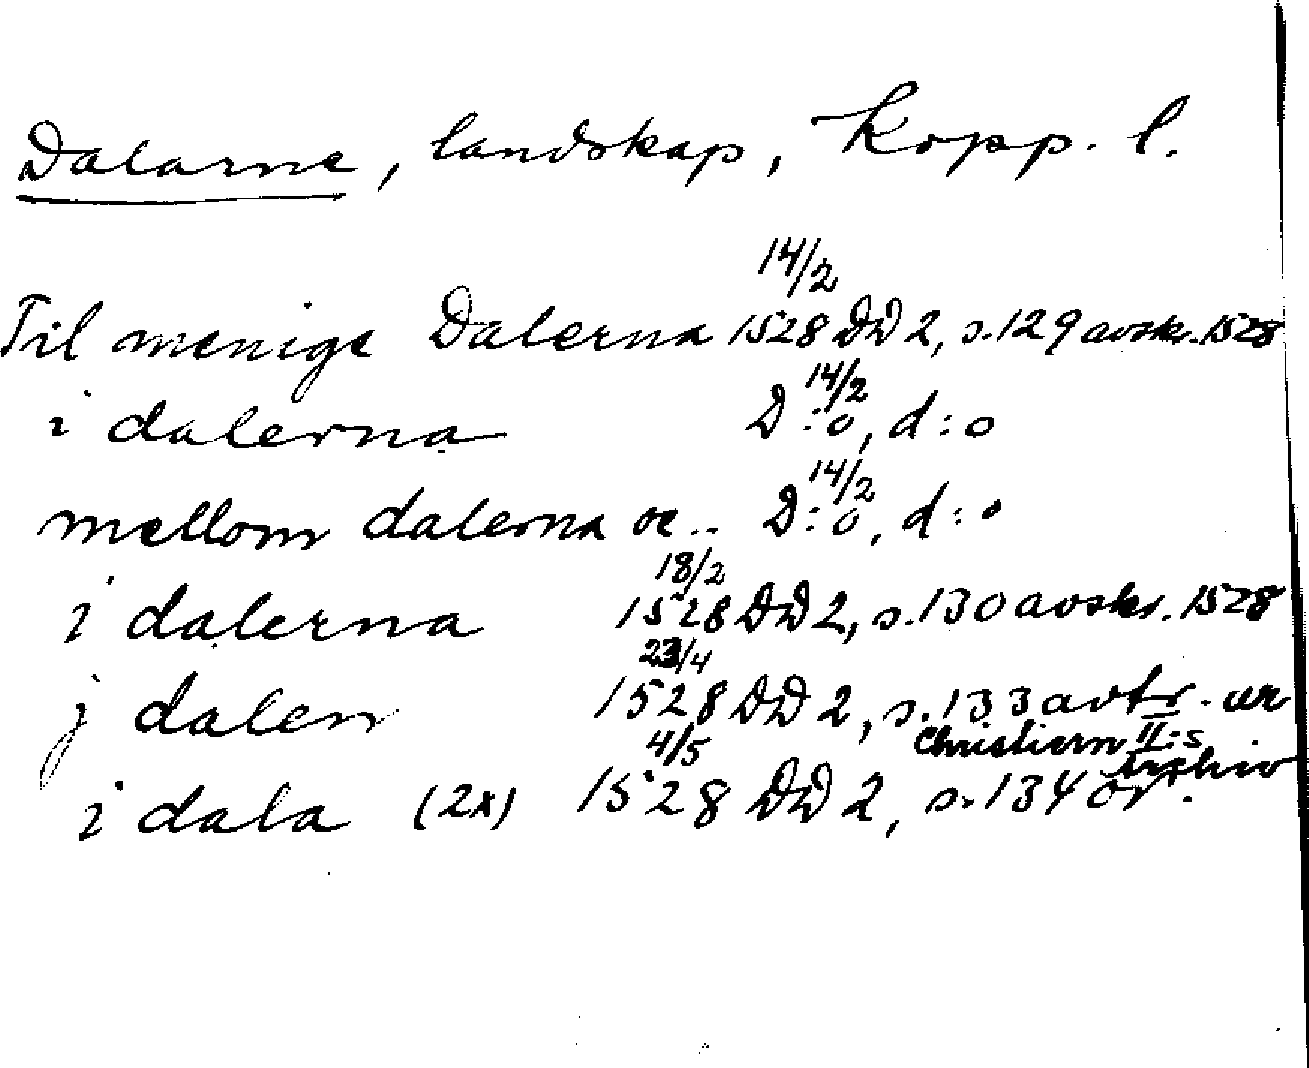 Dalarne, landskap, Kopp. l.
14/2
Til menige Dalerna 1528 DD 2, s. 129 avskr. 1528
14/2
i dalerna D:o, d:o
14/2
mellom dalerna oc.. D:o, d:o
18/2
i dalerna 1528 DD 2, s. 130 avskr. 1528
23/4
j dalen 1528 DD 2, s. 133 avtr. ur
Christiern II:s
arkiv
4/5
i dala (2x) 1528 DD 2, s. 134 or.